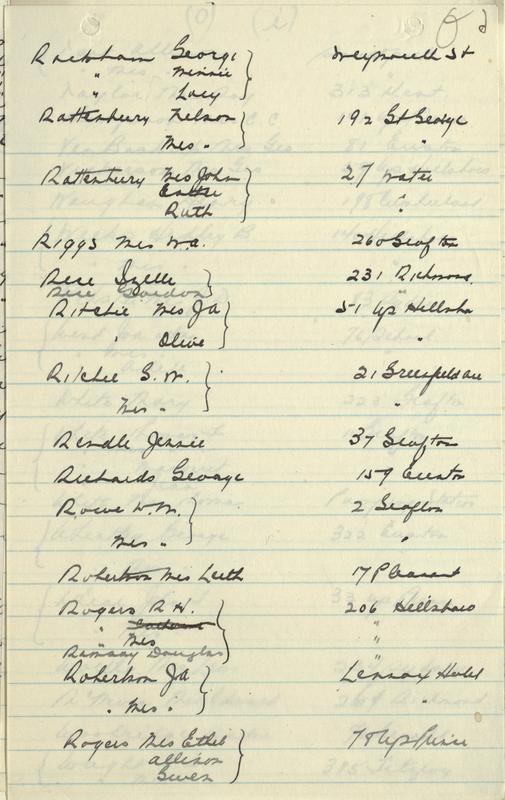 Rackham George } Weymouth St
" Minnie
" Lucy
Rattenbury Nelson } 192 St George
Mrs " "
Rattenbury Mrs John } 27 Water
Ruth "
Riggs Mrs W.A. 260 Grafton
Rice Izelle } 231 Richmond
Rice Gordon "
Ritchie Mrs Ja } 51 Up Hillsbo
" Olive "
Ritchie G. W. } 21 Greenfield ave
Mrs " "
Rendle Jennie 37 Grafton
Richards George 159 Euston
Rowe W.M. } 2 Grafton
Mrs " "
Robertson Mrs Leith 17 Pleasant
Rogers R H. } 206 Hillsboro
" Mrs "
Ramsay Douglas "
Robertson Ja } Lennox Hotel
" Mrs " "
Rogers Mrs Ethel } 78 Up Prince
Allison
Gwen